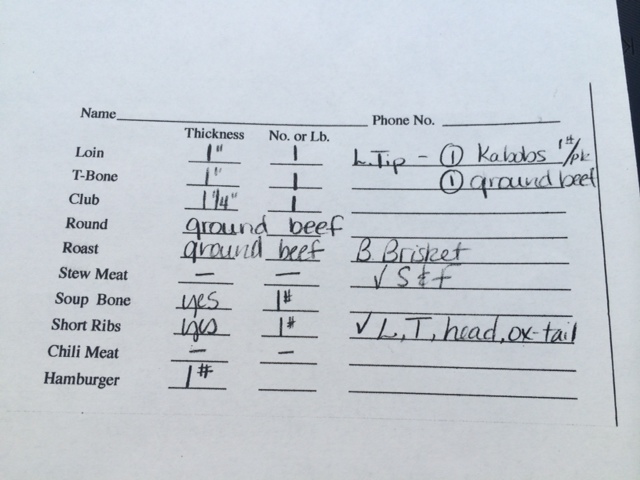 Name Phone No.
Thickness No. or Lb.
Loin 1" 1 L. Tip - ① Kabobs 1#/pk
T-Bone 1" 1 ① ground beef
Club 1 1/4" 1
Round ground beef
Roast ground beef B. Brisket
Stew Meat — — ✓ S & f
Soup Bone yes 1#
Short Ribs yes 1# ✓ L, T, head, ox-tail
Chili Meat — —
Hamburger 1#